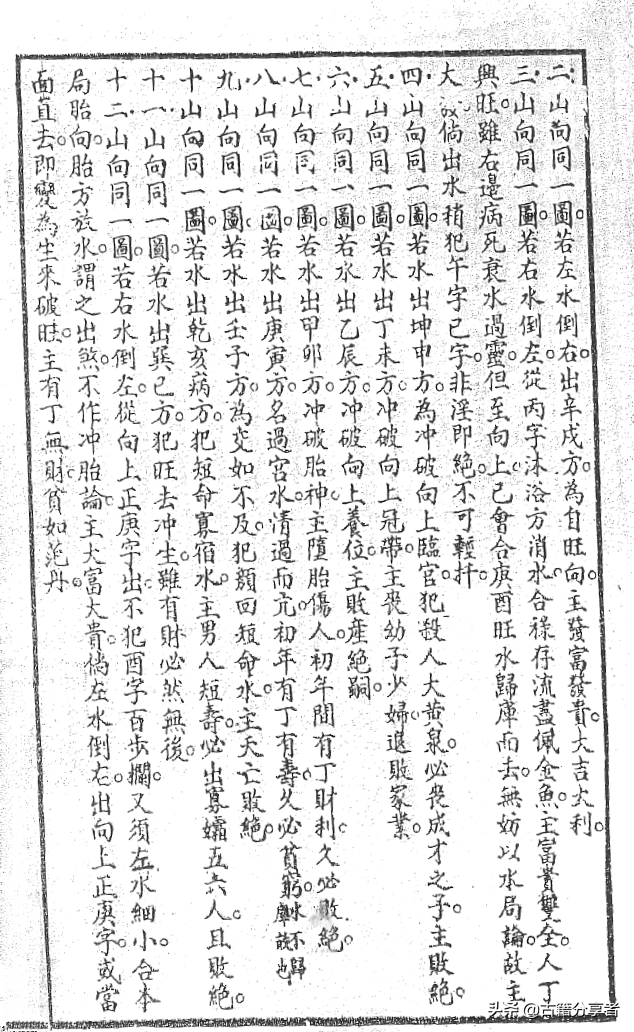 二山向同一圖若左水倒右出辛戌方為自旺向主發富發貴大吉大利
三山向同一圖若右水倒左從丙字沐浴方消水合祿存流盡佩金魚主富貴雙全人丁
興旺雖右邊病死衰水過靈但至向上已會合庚酉旺水歸庫而去無妨以水局論故主
大倘出水稍犯午字巳字非淫即絕不可輕扦
四山向同一圖若水出坤申方為冲破向上臨官犯殺人大黄泉必喪成才之子主敗絕
五山向同一圖若水出丁未方冲破向上冠帶主喪幼子少婦退敗家業
六山向同一圖若水出乙辰方冲破向上養位主敗產絕嗣
七山向同一圖若水出甲卯方冲破胎神主墮胎傷人初年間有丁財利久必敗絕
八山向同一圖若水出庚寅方名過宮水清過而亢初年有丁有壽久必貧窮水不歸庫故也
九山向同一圖若水出壬子方為交如不及犯顏回短命水主夭亡敗絕
十山向同一圖若水出乾亥病方犯短命寡宿水主男人短壽必出寡孀五六人且敗絕
十一山向同一圖若水出巽巳方犯旺去冲生雖有財必然無後
十二山向同一圖若右水倒左從向上正庚字出不犯酉字百步攔又須左水細小合本
局胎向胎方放水謂之出煞不作冲胎論主大富大貴倘左水倒右出向上正庚字或當
面直去即變為生來破旺主有丁無財貧如范丹
头条 @古籍分享者